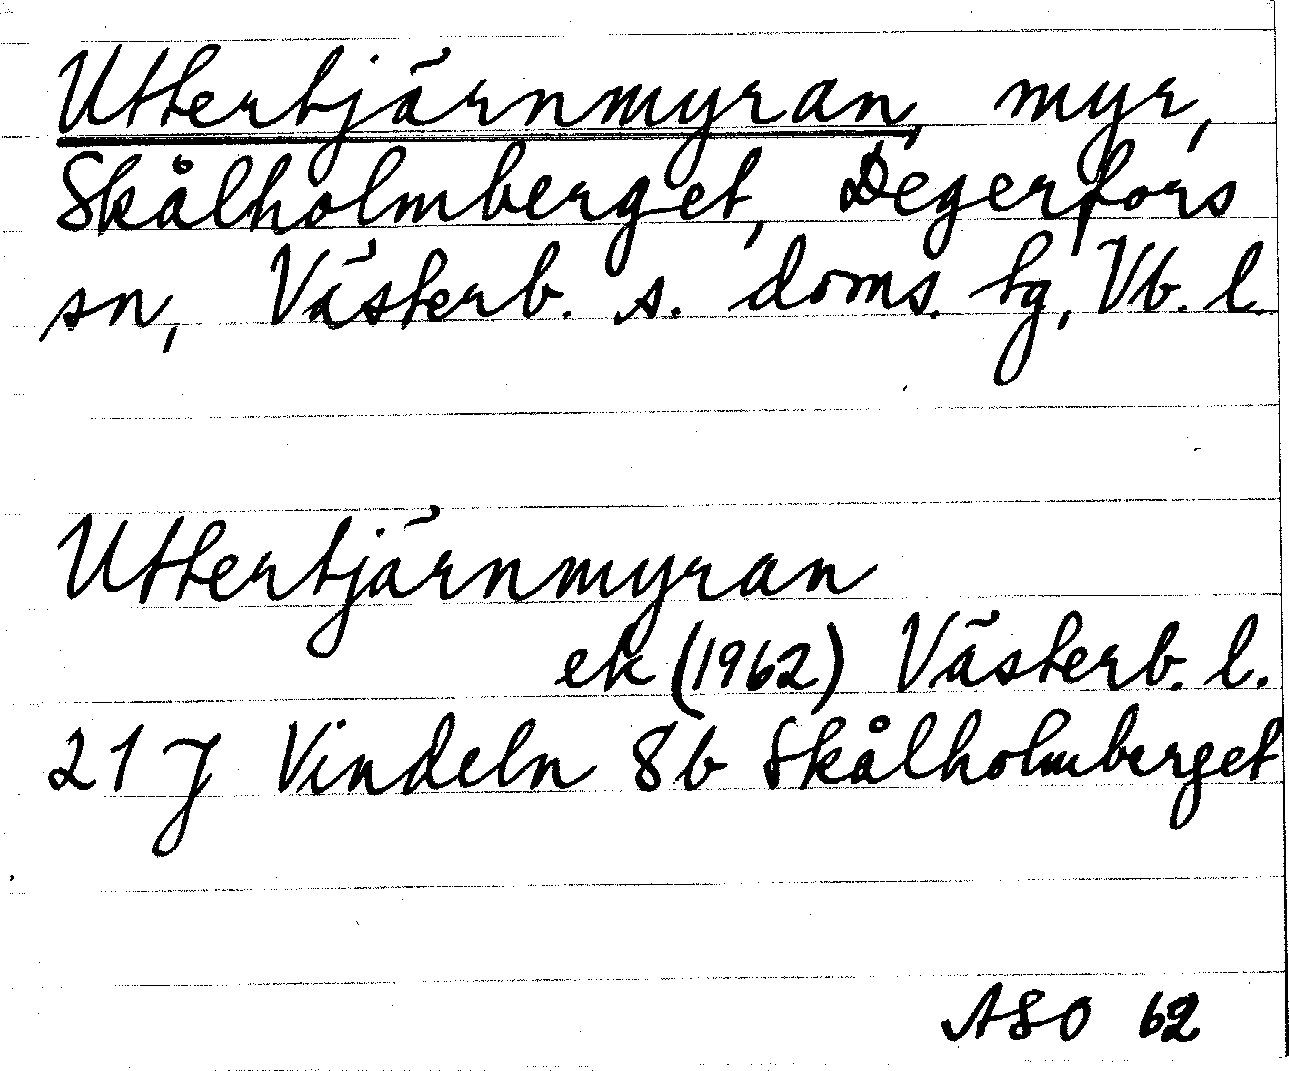 Uttertjärnmyran, myr,
Skålholmberget, Degerfors
sn, Västerb. s. doms. tg, Vb. l.
Uttertjärnmyran
ek (1962) Västerb. l.
21 J Vindeln 8b Skålholmberget
ASO 62